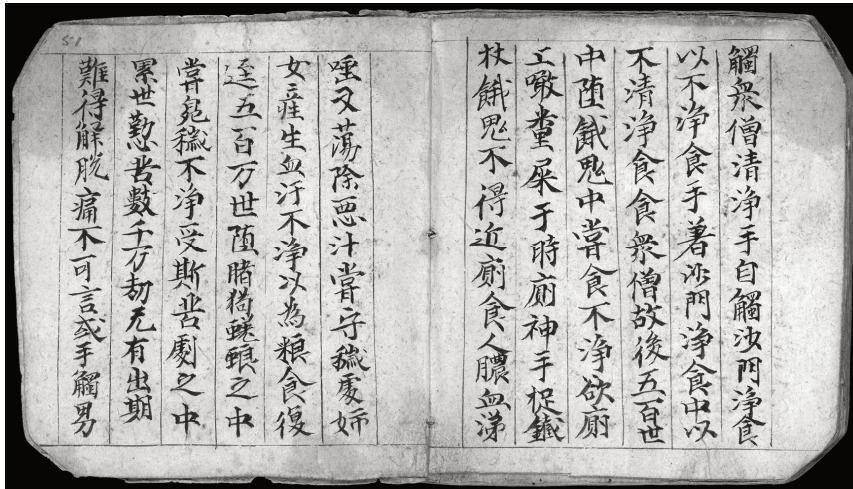 觸衆僧清淨手自觸沙門淨食
以不淨食手著沙門淨食中以
不清淨食食衆僧故後五百世
中堕餓鬼中常食不淨欲廁
上噉糞屎于時廁神手捉鐵
杖餓鬼不得近廁食人膿血涕
唾又蕩除惡汁常守穢處婦
女産生血汙不淨以為粮食復
逕五百万世堕賭猪蜣蜋之中
常皃穢不淨受斯苦劇之中
累世懃苦數千万劫无有出期
難得解脫痛不可言或手觸男
51